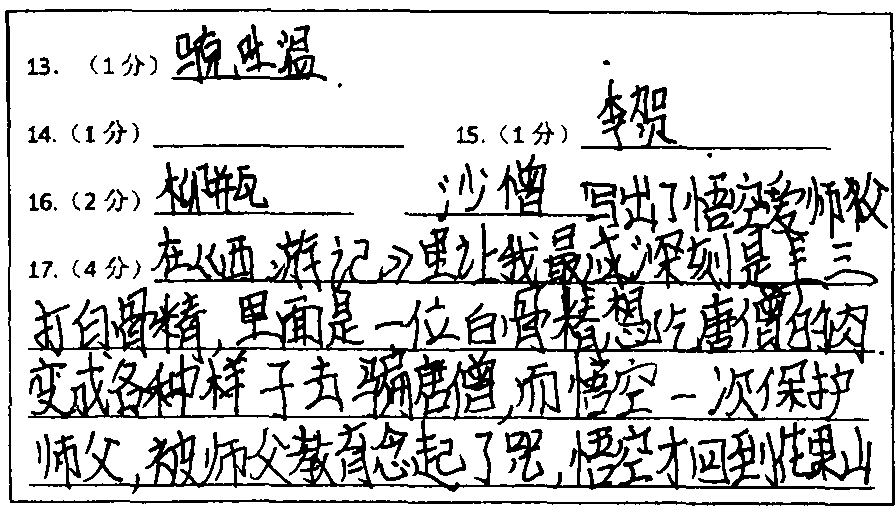 13. （1分）
14.（1分） 15.（1分）李贺
16.（2分） 沙僧 写出了悟空爱师父
17.（4分）在《西游记》里让我最深刻是三
打白骨精，里面是一位白骨精想吃唐僧的肉
变成各种样子去骗唐僧，而悟空一次保护
师父，被师父教育念起了咒，悟空才回到花果山